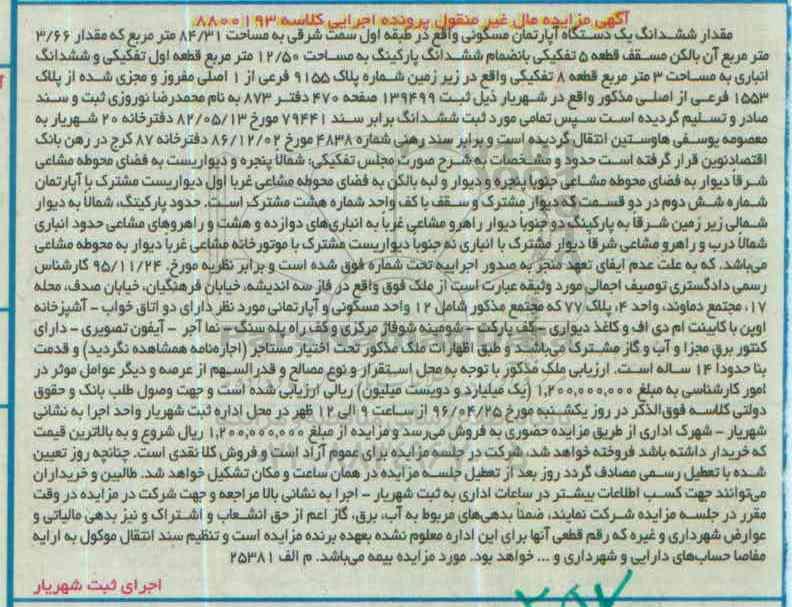 آگهی مزایده مال غیر منقول پرونده اجرایی کلاسه ۸۸۰۰۱۹۳
مقدار ششدانگ یک دستگاه آپارتمان مسکونی واقع در طبقه اول سمت شرقی به مساحت ۸۴/۳۱ متر مربع که مقدار ۳/۶۶
متر مربع آن بالکن مسقف قطعه ۵ تفکیکی بانضمام ششدانگ پارکینگ به مساحت ۱۲/۵۰ متر مربع قطعه اول تفکیکی و ششدانگ
انباری به مساحت ۳ متر مربع قطعه ۸ تفکیکی واقع در زیر زمین شماره پلاک ۹۱۵۵ فرعی از ۱ اصلی مفروز و مجزی شده از پلاک
۱۵۵۳ فرعی از اصلی مذکور واقع در شهریار ذیل ثبت ۱۳۹۴۹۹ صفحه ۴۷۰ دفتر ۸۷۳ به نام محمدرضا نوروزی ثبت و سند
صادر و تسلیم گردیده است سپس تمامی مورد ثبت ششدانگ برابر سند ۷۹۴۴۱ مورخ ۸۲/۰۵/۱۳ دفترخانه ۲۰ شهریار به
معصومه یوسفی هاوستین انتقال گردیده است و برابر سند رهنی شماره ۴۸۳۸ مورخ ۸۶/۱۲/۰۲ دفترخانه ۸۷ کرج در رهن بانک
اقتصادنوین قرار گرفته است حدود و مشخصات به شرح صورت مجلس تفکیکی: شمالا پنجره و دیواریست به فضای محوطه مشاعی
شرقا دیوار به فضای محوطه مشاعی جنوبا پنجره و دیوار و لبه بالکن به فضای محوطه مشاعی غربا اول دیواریست مشترک با آپارتمان
شماره شش دوم در دو قسمت که دیوار مشترک و سقف با کف واحد شماره هشت مشترک است. حدود پارکینگ، شمالا به دیوار
شمالی زیر زمین شرقا به پارکینگ دو جنوبا دیوار راهرو مشاعی غربا به انباری های دوازده و هشت و راهروهای مشاعی حدود انباری
شمالا درب و راهرو مشاعی شرقا دیوار مشترک با انباری نه جنوبا دیواریست مشترک با موتورخانه مشاعی غربا دیوار به محوطه مشاعی
می‌باشد. که به علت عدم ایفای تعهد منجر به صدور اجراییه تحت شماره فوق شده است و برابر نظریه مورخ. ۹۵/۱۱/۲۴ کارشناس
رسمی دادگستری توصیف اجمالی مورد وثیقه عبارت است از ملک فوق واقع در فاز سه اندیشه، خیابان فرهنگیان، خیابان صدف، محله
۱۷، مجتمع دماوند، واحد ۴، پلاک ۷۷ که مجتمع مذکور شامل ۱۲ واحد مسکونی و آپارتمانی مورد نظر دارای دو اتاق خواب - آشپزخانه
اوپن با کابینت ام دی اف و کاغذ دیواری - کف پارکت - شومینه شوفاژ مرکزی و کف راه پله سنگ - نما آجر - آیفون تصویری - دارای
کنتور برق مجزا و آب و گاز مشترک می‌باشد و طبق اظهارات ملک مذکور تحت اختیار مستاجر (اجاره‌نامه همشاهده نگردید) و قدمت
بنا حدودا ۱۴ ساله است. ارزیابی ملک مذکور با توجه به محل استقرار و نوع مصالح و قدرالسهم از عرصه و دیگر عوامل موثر در
امور کارشناسی به مبلغ ۱,۲۰۰,۰۰۰,۰۰۰ (یک میلیارد و دویست میلیون) ریالی ارزیابی شده است و جهت وصول طلب بانک و حقوق
دولتی کلاسه فوق‌الذکر در روز یکشنبه مورخ ۹۶/۰۴/۲۵ از ساعت ۹ الی ۱۲ ظهر در محل اداره ثبت شهریار واحد اجرا به نشانی
شهریار - شهرک اداری از طریق مزایده حضوری به فروش می‌رسد و مزایده از مبلغ ۱,۲۰۰,۰۰۰,۰۰۰ ریال شروع و به بالاترین قیمت
که خریدار داشته باشد فروخته خواهد شد. شرکت در جلسه مزایده برای عموم آزاد است و فروش کلا نقدی است. چنانچه روز تعیین
شده با تعطیل رسمی مصادف گردد روز بعد از تعطیل جلسه مزایده در همان ساعت و مکان تشکیل خواهد شد. طالبین و خریداران
می‌توانند جهت کسب اطلاعات بیشتر در ساعات اداری به ثبت شهریار - اجرا به نشانی بالا مراجعه و جهت شرکت در مزایده در وقت
مقرر در جلسه مزایده شرکت نمایند، ضمنا بدهی‌های مربوط به آب، برق، گاز اعم از حق انشعاب و اشتراک و نیز بدهی مالیاتی و
عوارض شهرداری و غیره که رقم قطعی آنها برای این اداره معلوم نشده بعهده برنده مزایده است و تنظیم سند انتقال موکول به ارایه
مفاصا حساب‌های دارایی و شهرداری و ... خواهد بود. مورد مزایده بیمه می‌باشد. م الف ۲۵۳۸۱
اجرای ثبت شهریار